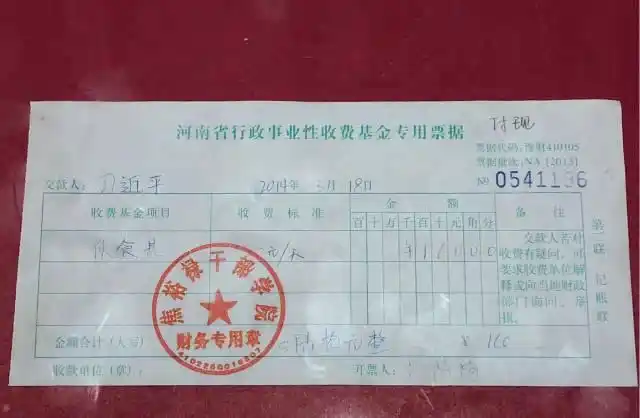 河南省行政事业性收费基金专用票据
付现
票据代码:豫财410105
票据批次:NA [2013]
№ 0541196
交款人: 习近平 2014年3月18日
收费基金项目 收费标准 金额 备注
百十万千百十元角分
伙食费 元/天 ¥16000
交款人若对收费有疑问,可要求收费单位解释或向当地财政部门查询、举报。
第一联 记账联
焦裕禄干部学院
财务专用章
金额合计(大写) 陆拾元整 ¥ 160
收款单位(章): 开票人: